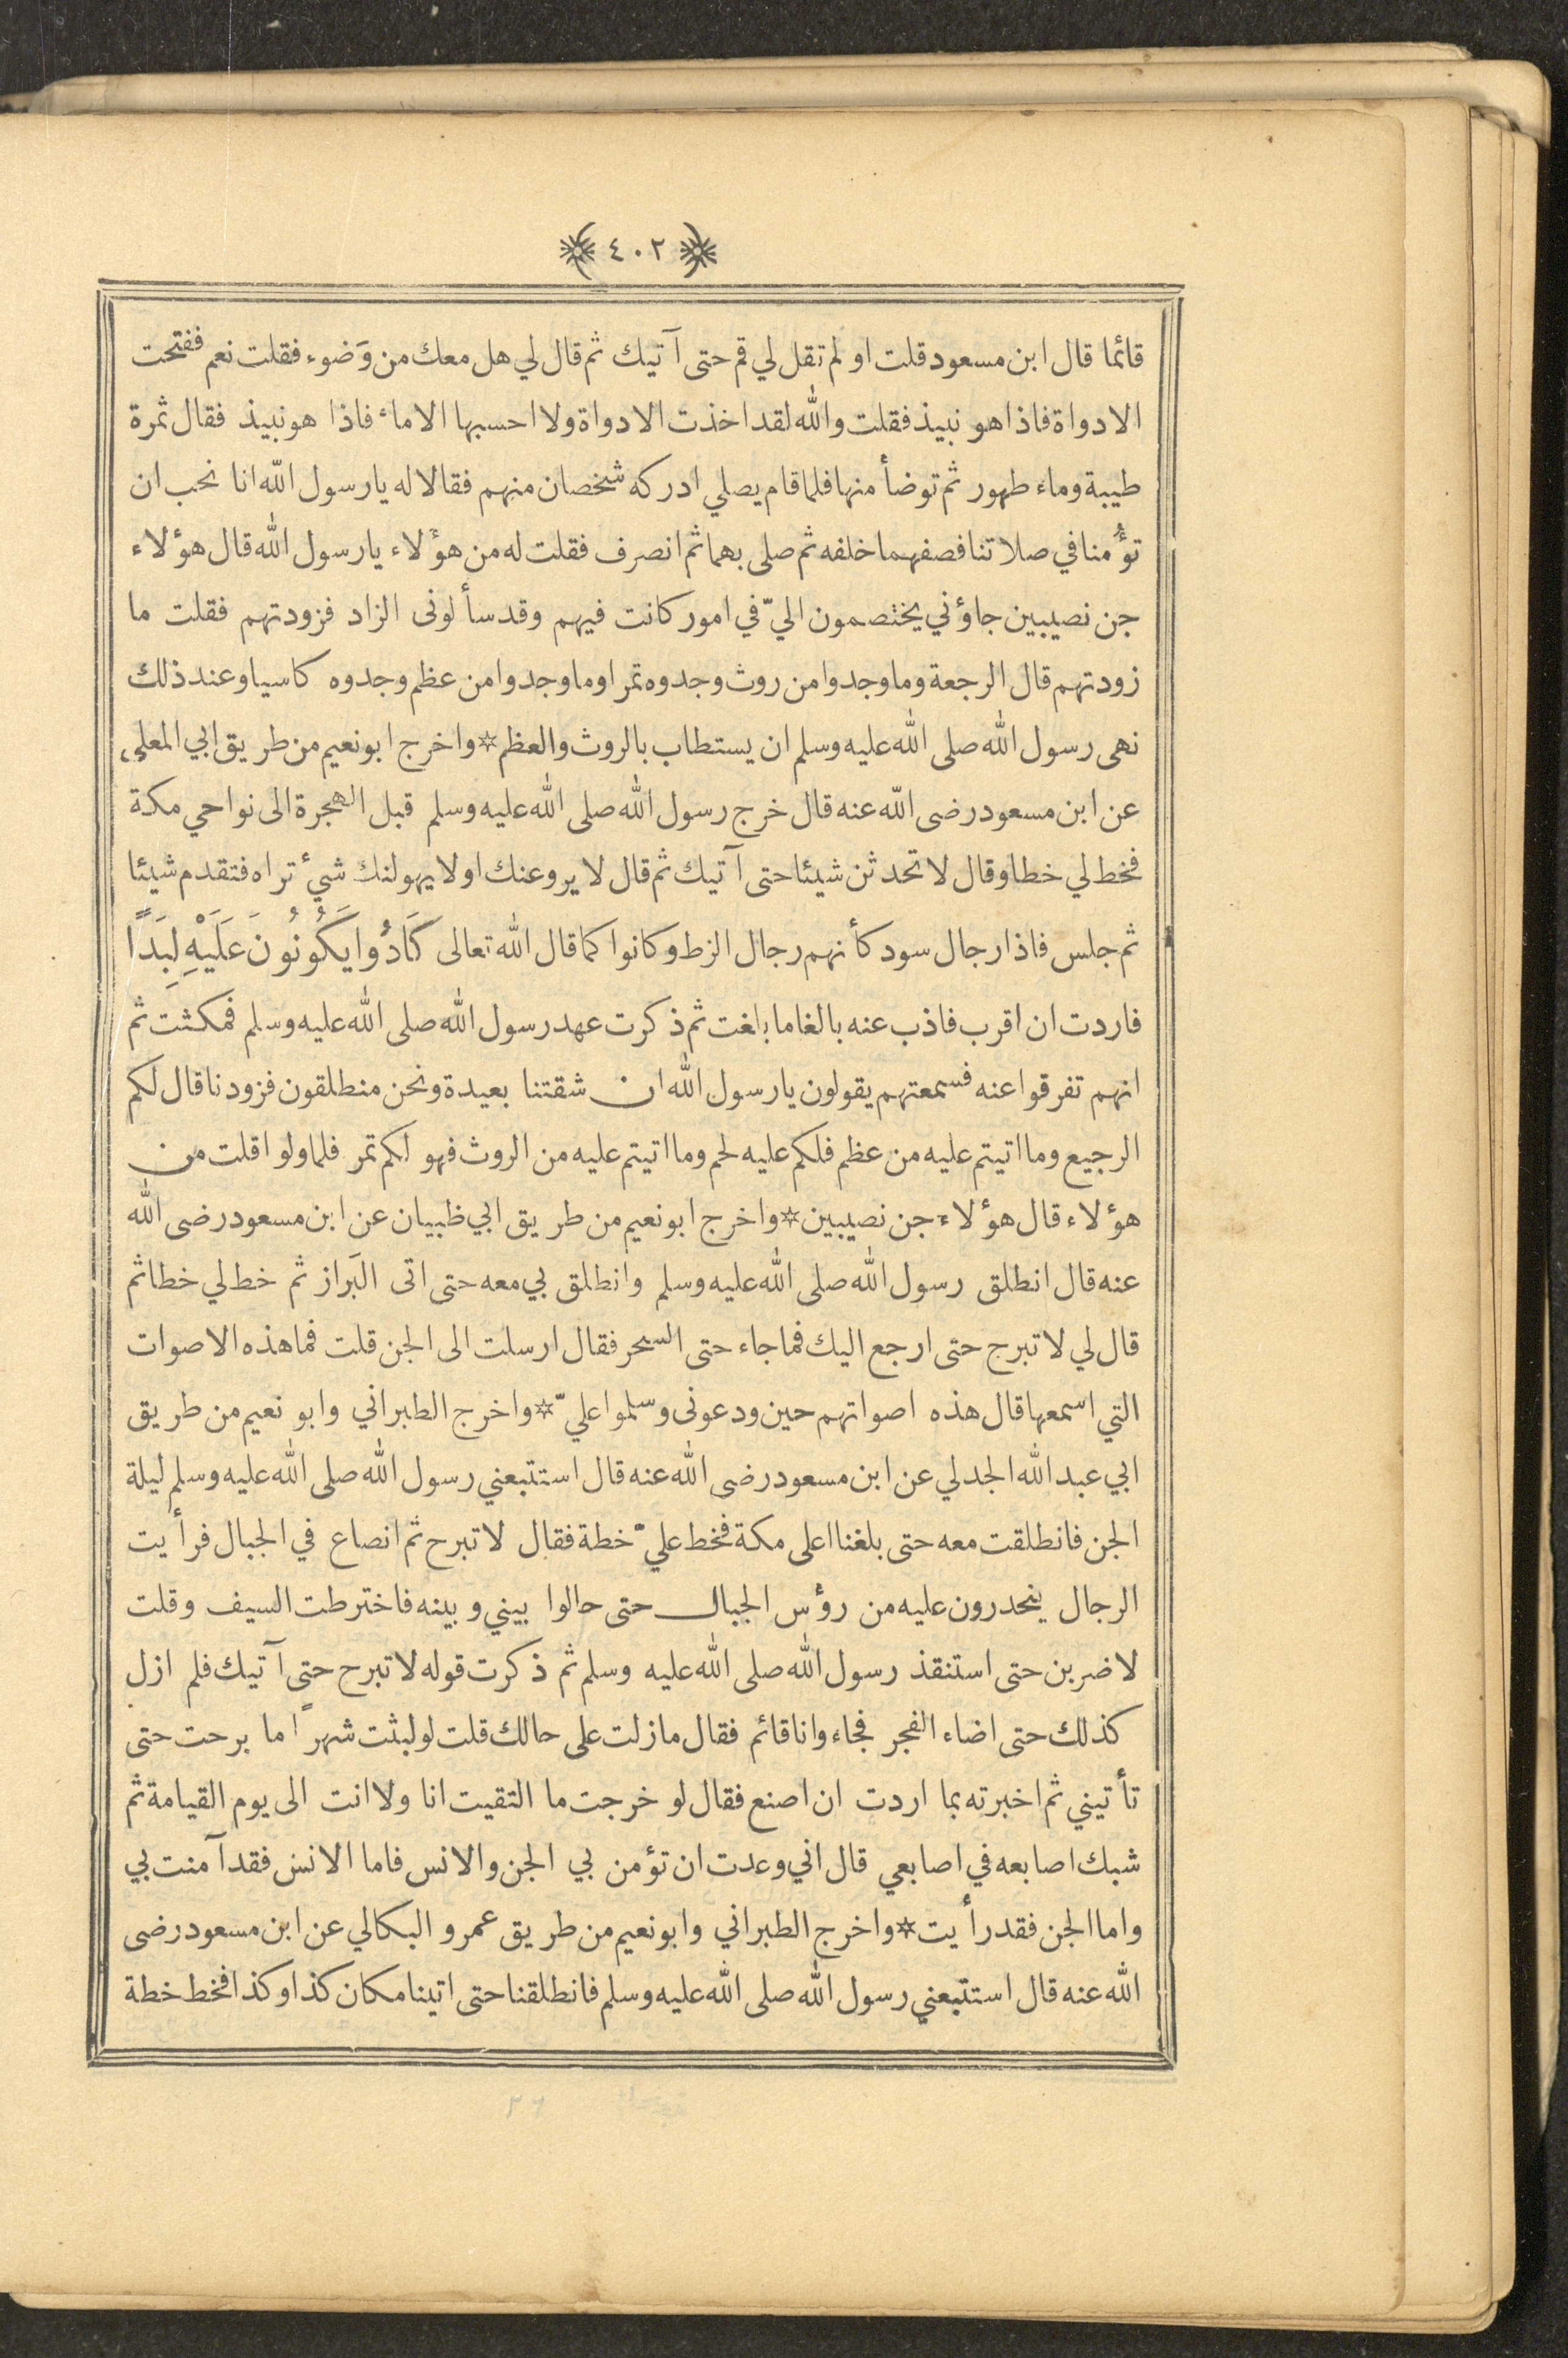 ٤٠٢
قائما قال ابن مسعود قلت او لم تقل لي قم حتى آتيك ثم قال لي هل معك من وَضوء فقلت نعم ففتحت
الادواة فاذا هو نبيذ فقلت والله لقد اخذت الادواة ولا احسبها الاماء فاذا هو نبيذ فقال ثمرة
طيبة وماء طهور ثم توضأ منها فلما قام يصلي ادركه شخصان منهم فقالا له يارسول الله انا نحب ان
تؤُمنا في صلاتنا فصفهما خلفه ثم صلى بهما ثم انصرف فقلت له من هؤلاء يارسول الله قال هؤلاء
جن نصيبين جاؤني يختصمون اليّ في امور كانت فيهم وقد سألونى الزاد فزودتهم فقلت ما
زودتهم قال الرجعة وما وجدوا من روث وجدوه تمرا وما وجدوا من عظم وجدوه كاسيا وعند ذلك
نهى رسول الله صلى الله عليه وسلم ان يستطاب بالروث والعظم * واخرج ابو نعيم من طريق ابي المعلى
عن ابن مسعود رضى الله عنه قال خرج رسول الله صلى الله عليه وسلم قبل الهجرة الى نواحي مكة
فخط لي خطا وقال لا تحدثن شيئا حتى آتيك ثم قال لا يروعنك او لا يهولنك شيء تراه فتقدم شيئا
ثم جلس فاذا رجال سود كأنهم رجال الزط وكانوا كما قال الله تعالى كَادُوا يَكُونُونَ عَلَيْهِ لِبَدًا
فاردت ان اقرب فاذب عنه بالغا ما بلغت ثم ذكرت عهد رسول الله صلى الله عليه وسلم فمكثت ثم
انهم تفرقوا عنه فسمعتهم يقولون يارسول الله ان شقتنا بعيدة ونحن منطلقون فزودنا قال لكم
الرجيع وما اتيتم عليه من عظم فلكم عليه لحم وما اتيتم عليه من الروث فهو لكم تمر فلما ولوا قلت من
هؤلاء قال هؤلاء جن نصيبين * واخرج ابو نعيم من طريق ابي ظبيان عن ابن مسعود رضى الله
عنه قال انطلق رسول الله صلى الله عليه وسلم وانطلق بي معه حتى اتى البَراز ثم خط لي خطا ثم
قال لي لا تبرج حتى ارجع اليك فما جاء حتى السحر فقال ارسلت الى الجن قلت فما هذه الاصوات
التي اسمعها قال هذه اصواتهم حين ودعونى وسلموا عليّ * واخرج الطبراني وابو نعيم من طريق
ابي عبد الله الجدلي عن ابن مسعود رضى الله عنه قال استتبعني رسول الله صلى الله عليه وسلم ليلة
الجن فانطلقت معه حتى بلغنا اعلى مكة فخط عليّ خطة فقال لا تبرح ثم انصاع في الجبال فرأيت
الرجال ينحدرون عليه من رؤس الجبال حتى حالوا بيني وبينه فاخترطت السيف وقلت
لاضربن حتى استنقذ رسول الله صلى الله عليه وسلم ثم ذكرت قوله لا تبرح حتى آتيك فلم ازل
كذلك حتى اضاء الفجر فجاء وانا قائم فقال ما زلت على حالك قلت لو لبثت شهرًا ما برحت حتى
تأتيني ثم اخبرته بما اردت ان اصنع فقال لو خرجت ما التقيت انا ولا انت الى يوم القيامة ثم
شبك اصابعه في اصابعي قال اني وعدت ان تؤمن بي الجن والانس فاما الانس فقد آمنت بي
واما الجن فقد رأيت * واخرج الطبراني وابو نعيم من طريق عمرو البكالي عن ابن مسعود رضى
الله عنه قال استتبعني رسول الله صلى الله عليه وسلم فانطلقنا حتى اتينا مكان كذا وكذا فخط خطة